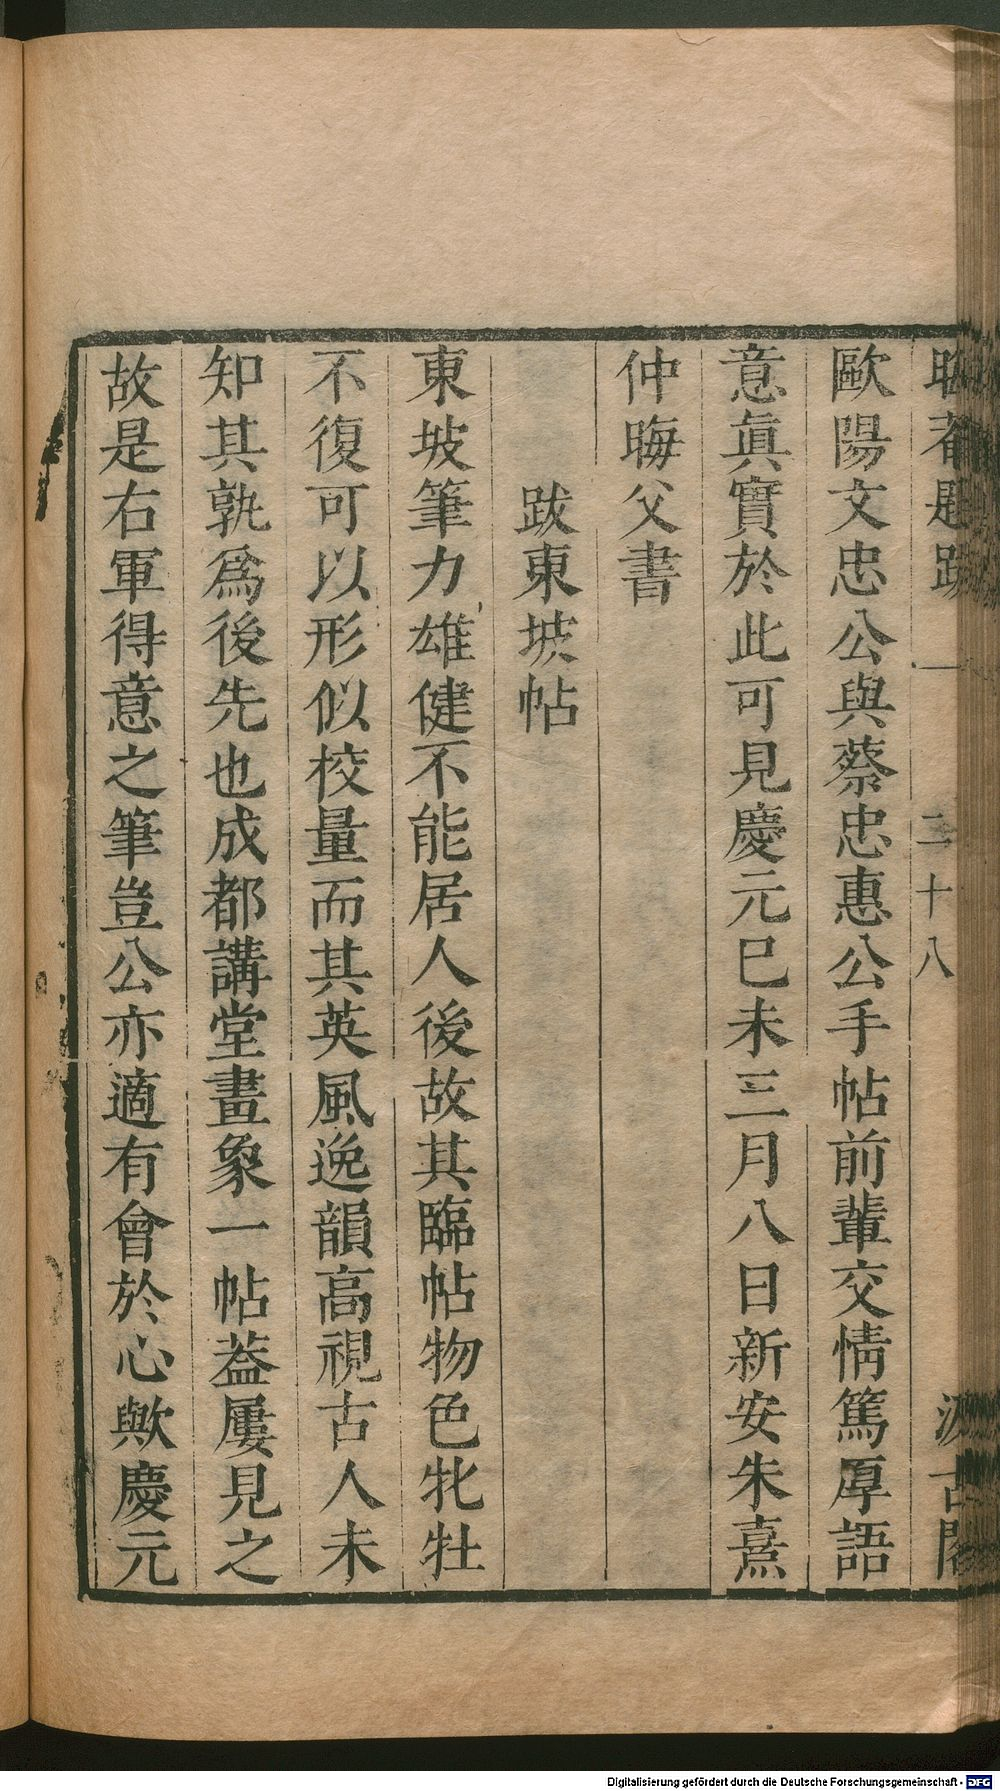 晦菴題跋 一 二十八 汲古閣
歐陽文忠公與蔡忠惠公手帖前輩交情篤厚語
意眞實於此可見慶元巳未三月八日新安朱熹
仲晦父書
跋東坡帖
東坡筆力雄健不能居人後故其臨帖物色牝牡
不復可以形似校量而其英風逸韻高視古人未
知其孰爲後先也成都講堂畫象一帖葢屢見之
故是右軍得意之筆豈公亦適有會於心歟慶元
Digitalisierung gefördert durch die Deutsche Forschungsgemeinschaft - DFG